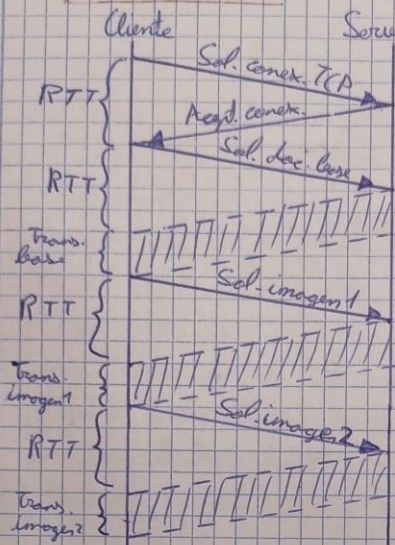 Cliente Serv
Sol. conex. TCP
RTT
Acept. conex.
Sol. doc. base
RTT
Trans.
base
Sol. imagen1
RTT
Trans.
imagen1
Sol. imagen2
RTT
Trans.
imagen2